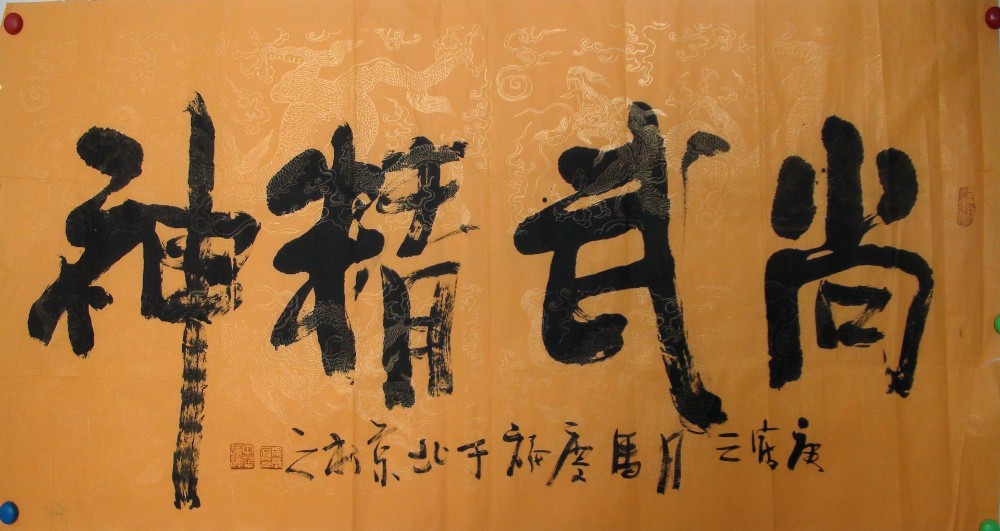 尚武精神
庚寅三月馬慶于北京之